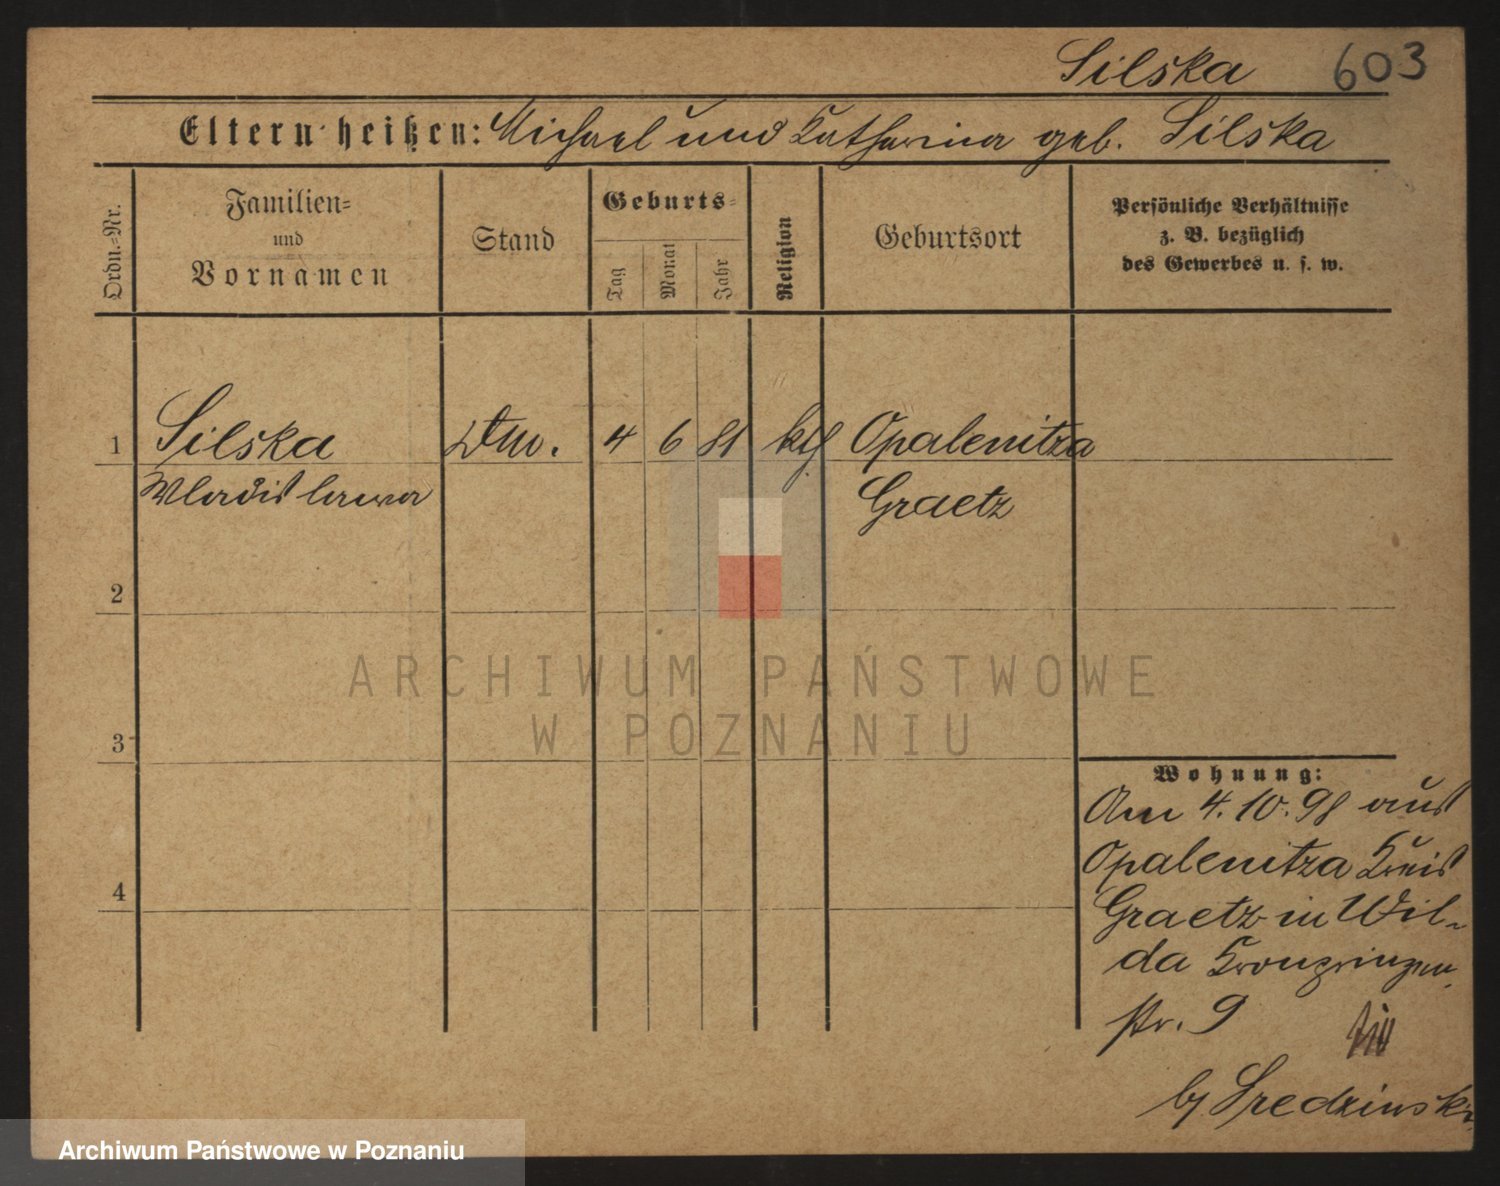 Silska 603
Eltern heißen: Michael und Katharina geb. Silska
Ordn.-Nr.
Familien-
und
Vornamen
Stand
Geburts-
Tag
Monat
Jahr
Religion
Geburtsort
Persönliche Verhältnisse
z. B. bezüglich
des Gewerbes u. s. w.
1 Silska 4 6 81 kth Opalenitza
Wladislawa Graetz
2
3
4
ARCHIWUM PAŃSTWOWE
W POZNANIU
Wohnung:
Am 4.10.98 aus
Opalenitza Kreis
Graetz in Wil-
da Kronprinzen
str. 9
by Sredzinski
Archiwum Państwowe w Poznaniu